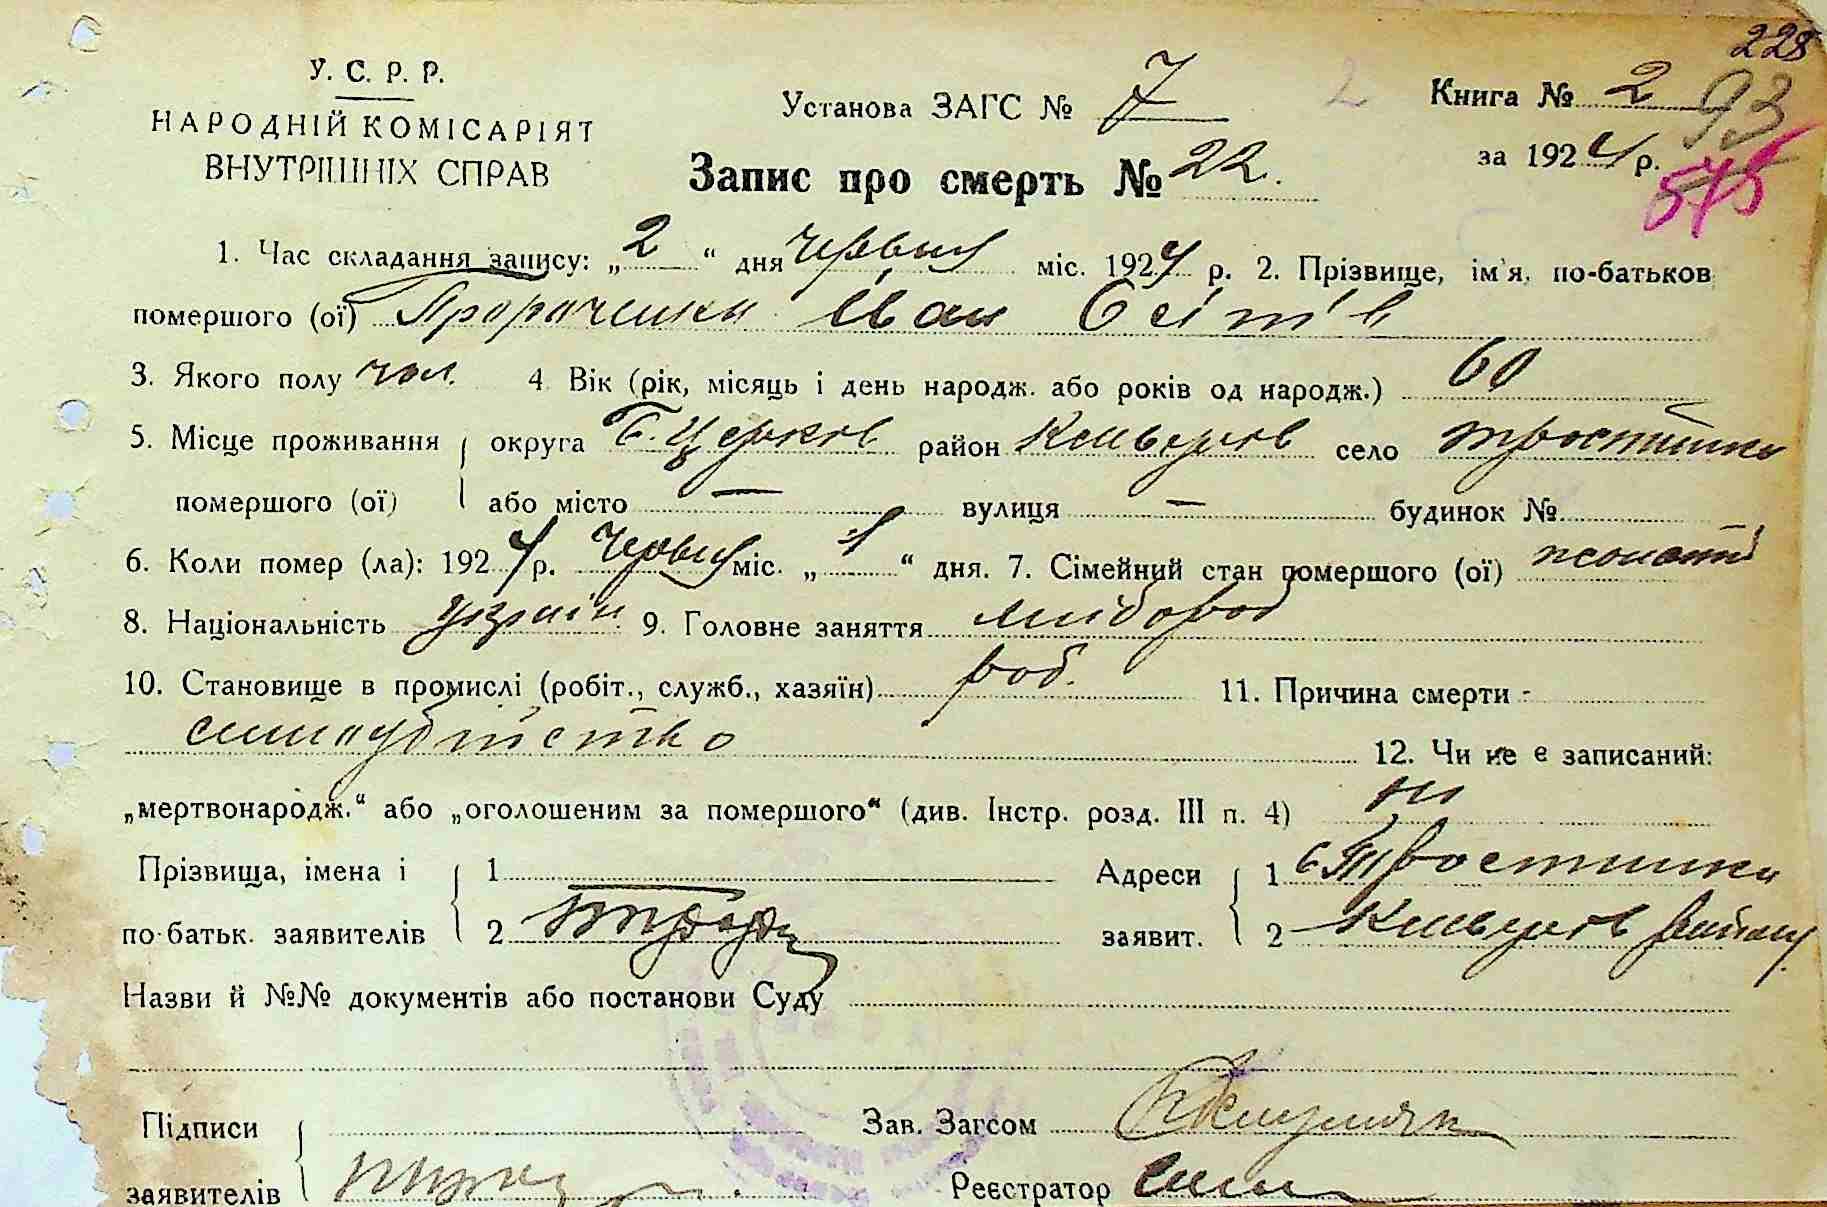 228
У. С. Р. Р.
НАРОДНІЙ КОМІСАРІЯТ
ВНУТРІШНІХ СПРАВ
Установа ЗАГС № 7
2
Книга № 2
93
за 1924 р.
575
Запис про смерть № 22.
1. Час складання запису: „2“ дня червня міс. 1924 р. 2. Прізвище, ім'я, по-батьков
помершого (ої) Іван
3. Якого полу чол. 4. Вік (рік, місяць і день народж. або років од народж.) 60
5. Місце проживання округа Б. Церков район село Тростинка
помершого (ої) або місто — вулиця — будинок №
6. Коли помер (ла): 1924 р. червня міс. „1“ дня. 7. Сімейний стан помершого (ої) жонатий
8. Національність україн. 9. Головне заняття хлібороб
10. Становище в промислі (робіт., служб., хазяїн) роб. 11. Причина смерти -
самоубійство
12. Чи не є записаний:
„мертвонародж.“ або „оголошеним за помершого“ (див. Інстр. розд. III п. 4) ні
Прізвища, імена і 1 Адреси 1 с. Тростинка
по-батьк. заявителів 2 заявит. 2 району
Назви й №№ документів або постанови Суду
Підписи Зав. Загсом
заявителів Реєстратор